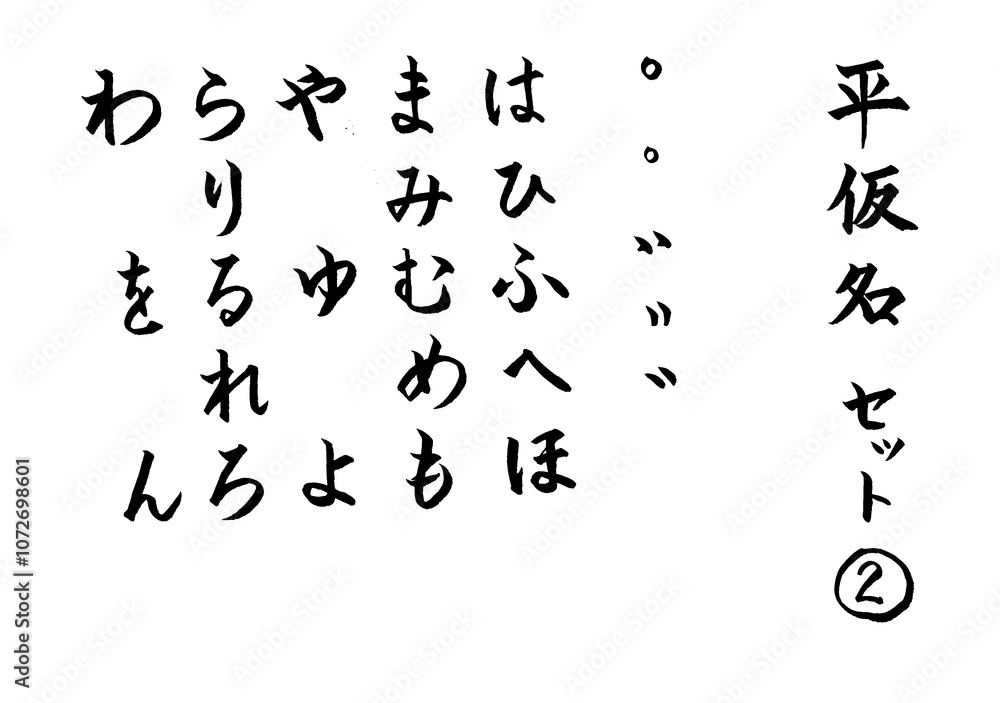 平仮名 セット ②
゜゜゛゛゛
はひふへほ
まみむめも
や ゆ よ
らりるれろ
わ を ん
Adobe Stock | #1072698601
Adobe Stock